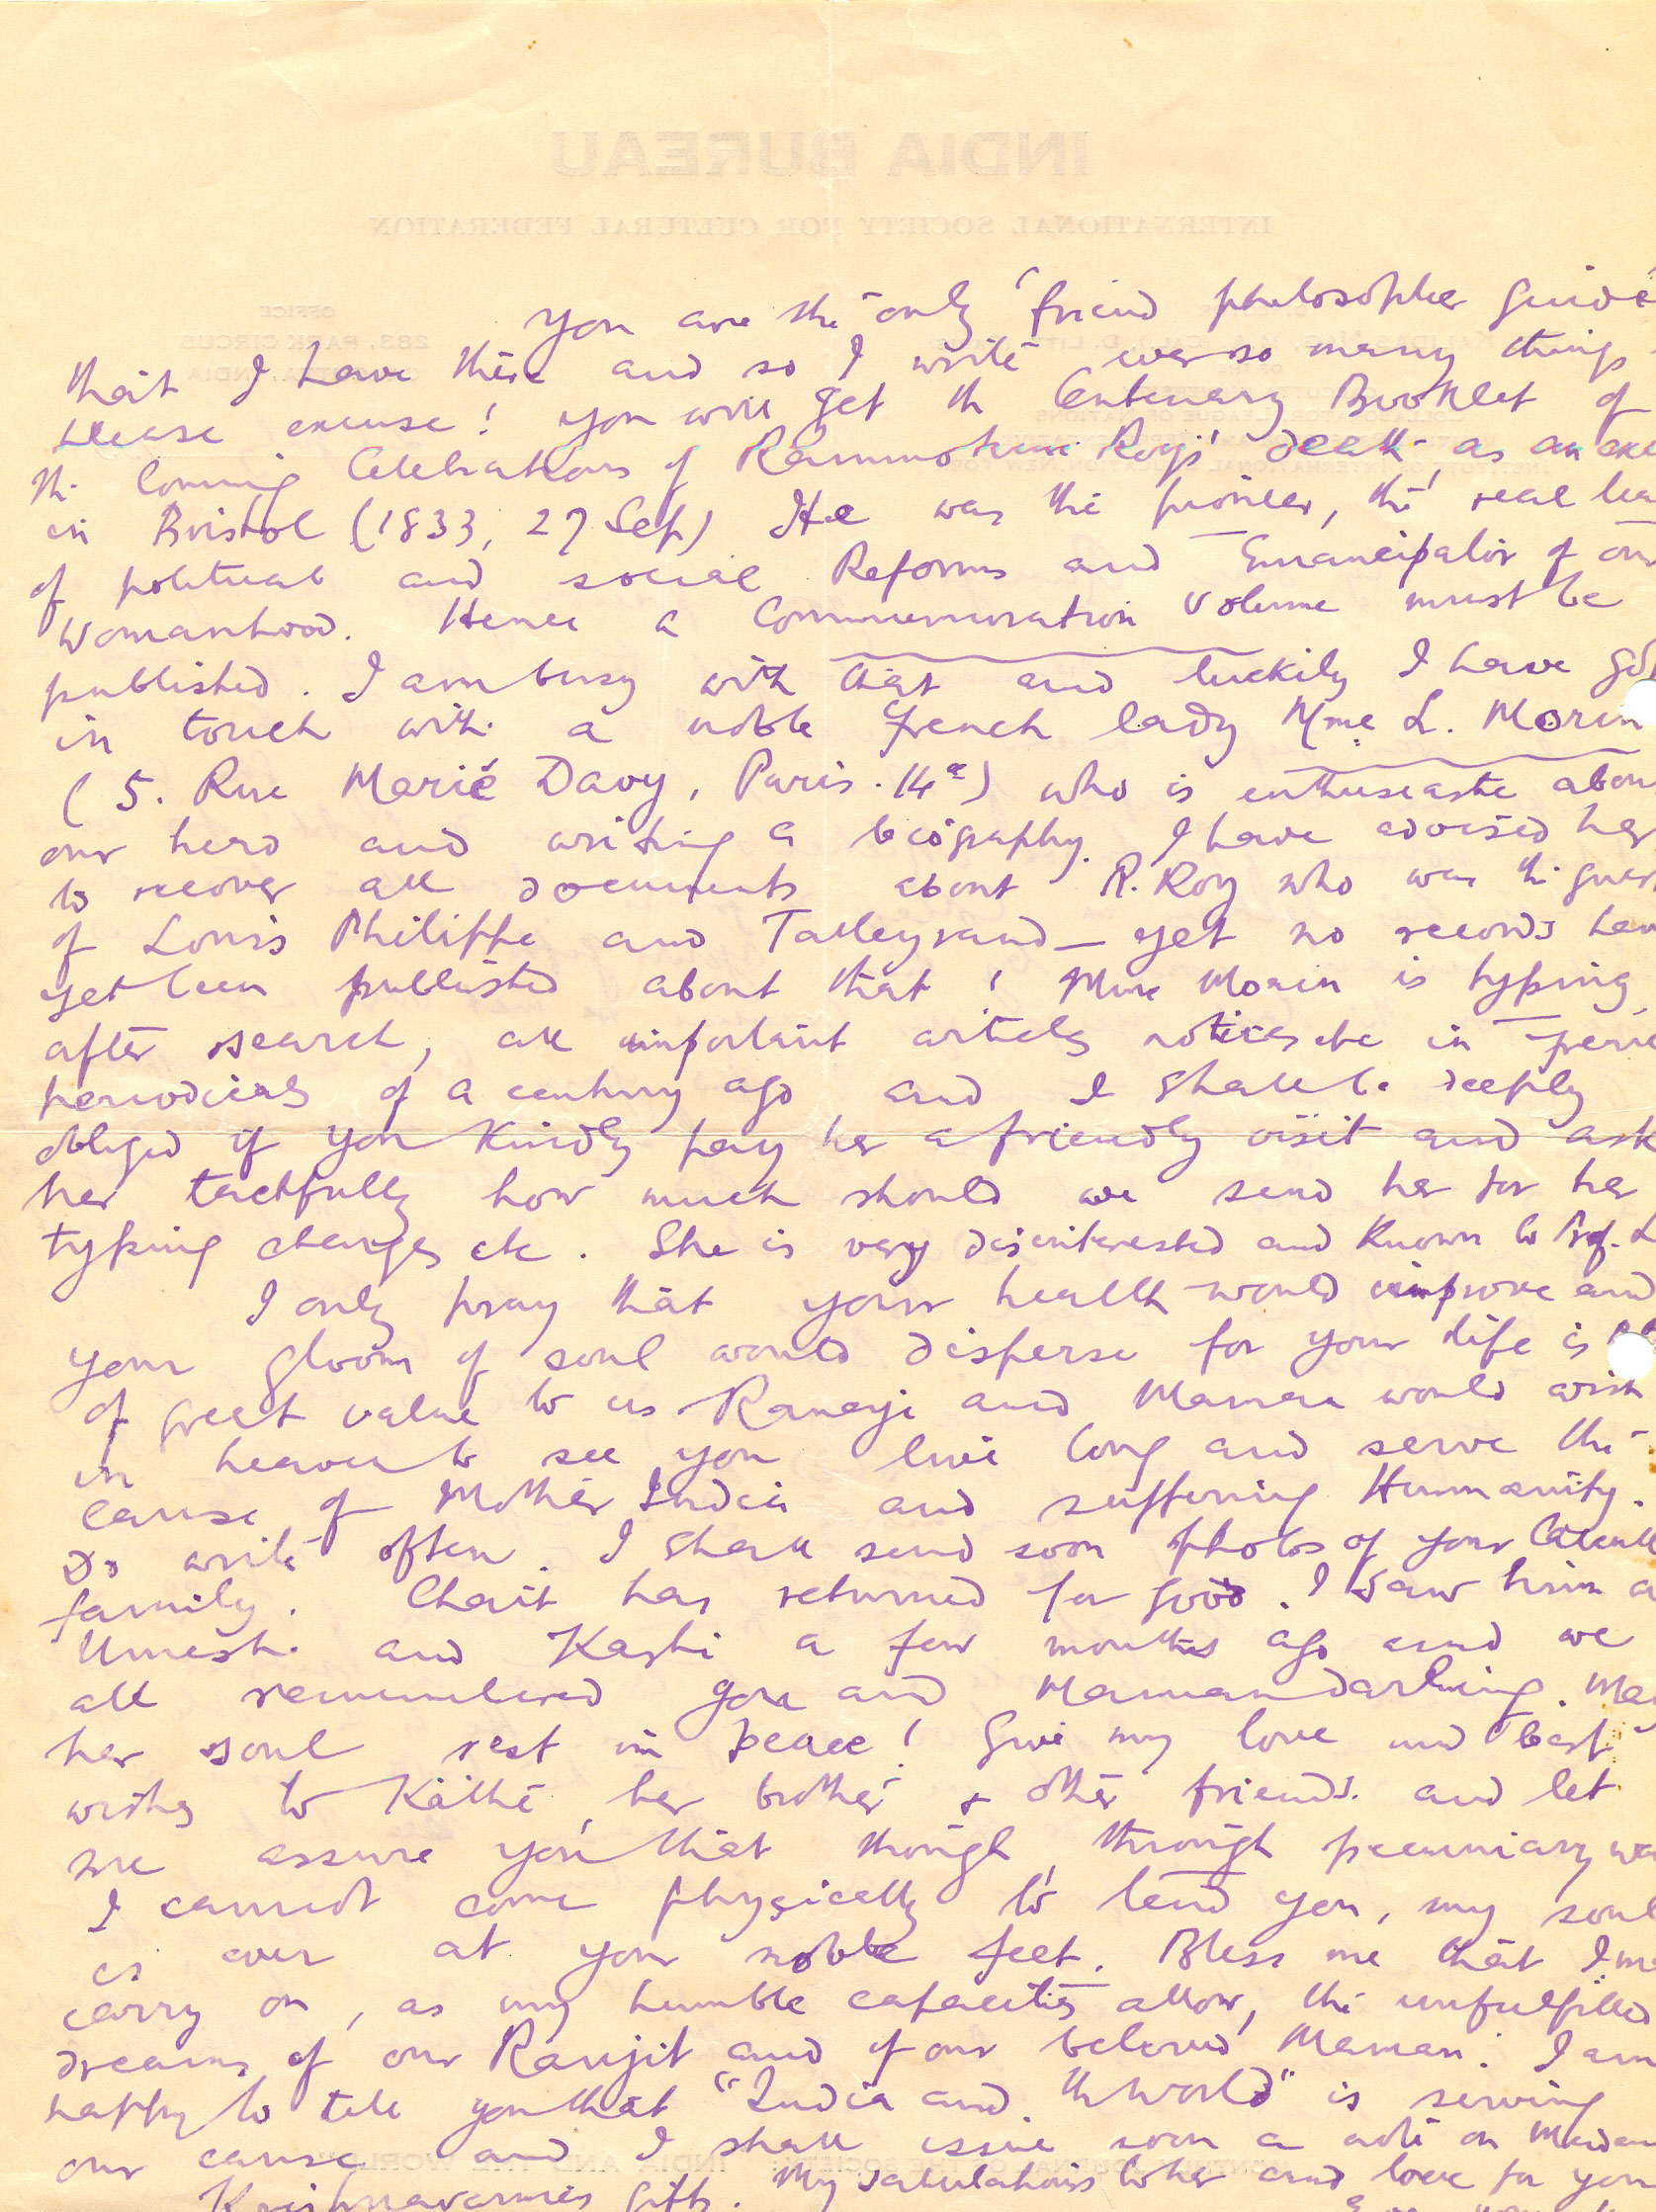 You are the only 'friend philosopher guide'
that I have there and so I write ever so many things
please excuse! You will get the Centenary Booklet of
the coming Celebrations of Rammohun Roy's death, as an
in Bristol (1833, 27 Sep) He was the pioneer, the real
of political and social Reforms and Emancipator of our
Womanhood. Hence a Commemoration Volume must be
published. I am busy with that and luckily I have got
in touch with a noble French lady Mme L. Morin
(5. Rue Marié Davy, Paris. 14e) who is enthusiastic about
our hero and writing a biography. I have advised her
to recover all documents about R. Roy who was the guest
of Louis Philippe and Talleyrand — yet no records have
yet been published about that! Mme Morin is typing,
after search, all important articles notices etc in
periodicals of a century ago and I shall be deeply
obliged if you kindly pay her a friendly visit and ask
her tactfully how much should we send her for her
typing charges etc. She is very disinterested and known to Prof. L
I only pray that your health would improve and
your gloom of soul would disperse for your life is
of great value to us. Ranaji and Maman would wish
in heaven to see you live long and serve the
cause of Mother India and suffering Humanity.
Do write often. I shall send soon photos of your
family. Chait has returned for good. I saw him
Umesh and Kashi a few months ago and we
all remembered you and Maman darling. May
her soul rest in peace! Give my love and best
wishes to Käthe, her brother & other friends. and let
me assure you that though through pecuniary
I cannot come physically to tend you, my soul
is ever at your noble feet. Bless me that I
carry on, as my humble capacities allow, the unfulfilled
dreams of our Ranjit and of our beloved Maman. I am
happy to tell you that "India and the World" is serving
our cause and I shall issue soon a note on
Krishnavarma's gifts. My salutations to her and love for you
INDIA BUREAU
INTERNATIONAL SOCIETY FOR CULTURAL FEDERATION
OFFICE
283, PARK CIRCUS